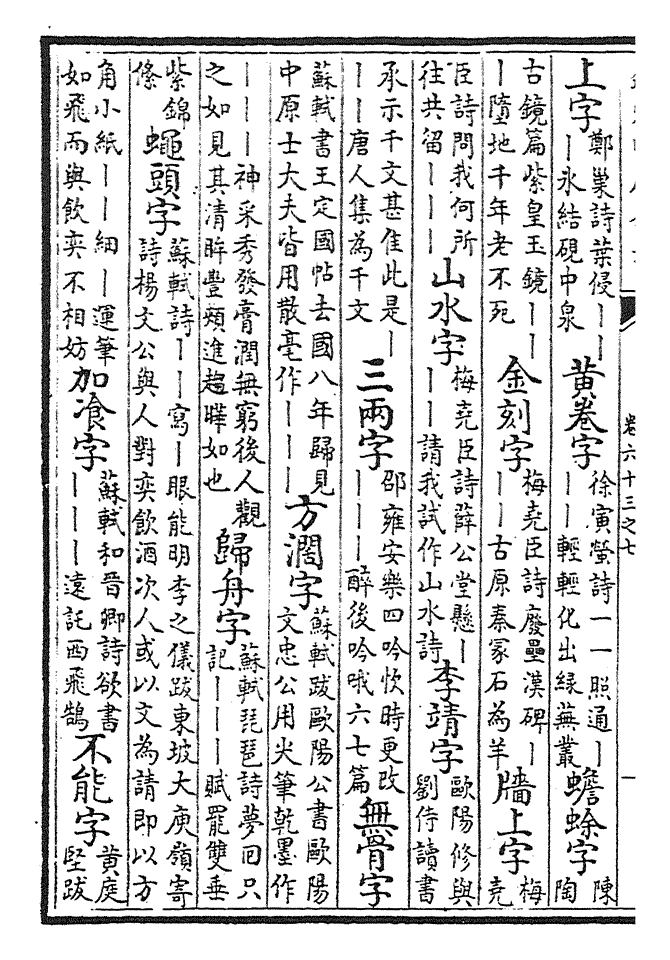 卷六十三之七
一
上字
鄭巢詩葉侵｜｜
｜氷結硯中泉
黃卷字
徐寅螢詩一一照通｜
｜｜輕輕化出緑蕪叢
蟾蜍字
陳
陶
古鏡篇紫皇玉鏡｜｜
｜墮地千年老不死
金刻字
梅堯臣詩廢壘漢碑｜
｜｜古原秦冢石為羊
牆上字
梅
堯
臣詩問我何所
往共留｜｜｜
山水字
梅堯臣詩薛公堂懸｜
｜｜請我試作山水詩
李靖字
歐陽修與
劉侍讀書
承示千文甚佳此是｜
｜｜唐人集為千文
三兩字
邵雍安樂四吟忺時更改
｜｜｜醉後吟哦六七篇
無骨字
蘇軾書王定國帖去國八年歸見
中原士大夫皆用散毫作｜｜｜
方濶字
蘇軾跋歐陽公書歐陽
文忠公用尖筆乾墨作
｜｜｜神采秀發膏潤無窮後人觀
之如見其清眸豐頰進趨曄如也
歸舟字
蘇軾琵琶詩夢回只
記｜｜｜賦罷雙垂
紫錦
絛
蠅頭字
蘇軾詩｜｜寫｜眼能明李之儀跋東坡大庾嶺寄
詩楊文公與人對奕飲酒次人或以文為請即以方
角小紙｜｜細｜運筆
如飛而與飲奕不相妨
加飡字
蘇軾和晉卿詩欲書
｜｜｜遠託西飛鵠
不能字
黃庭
堅跋